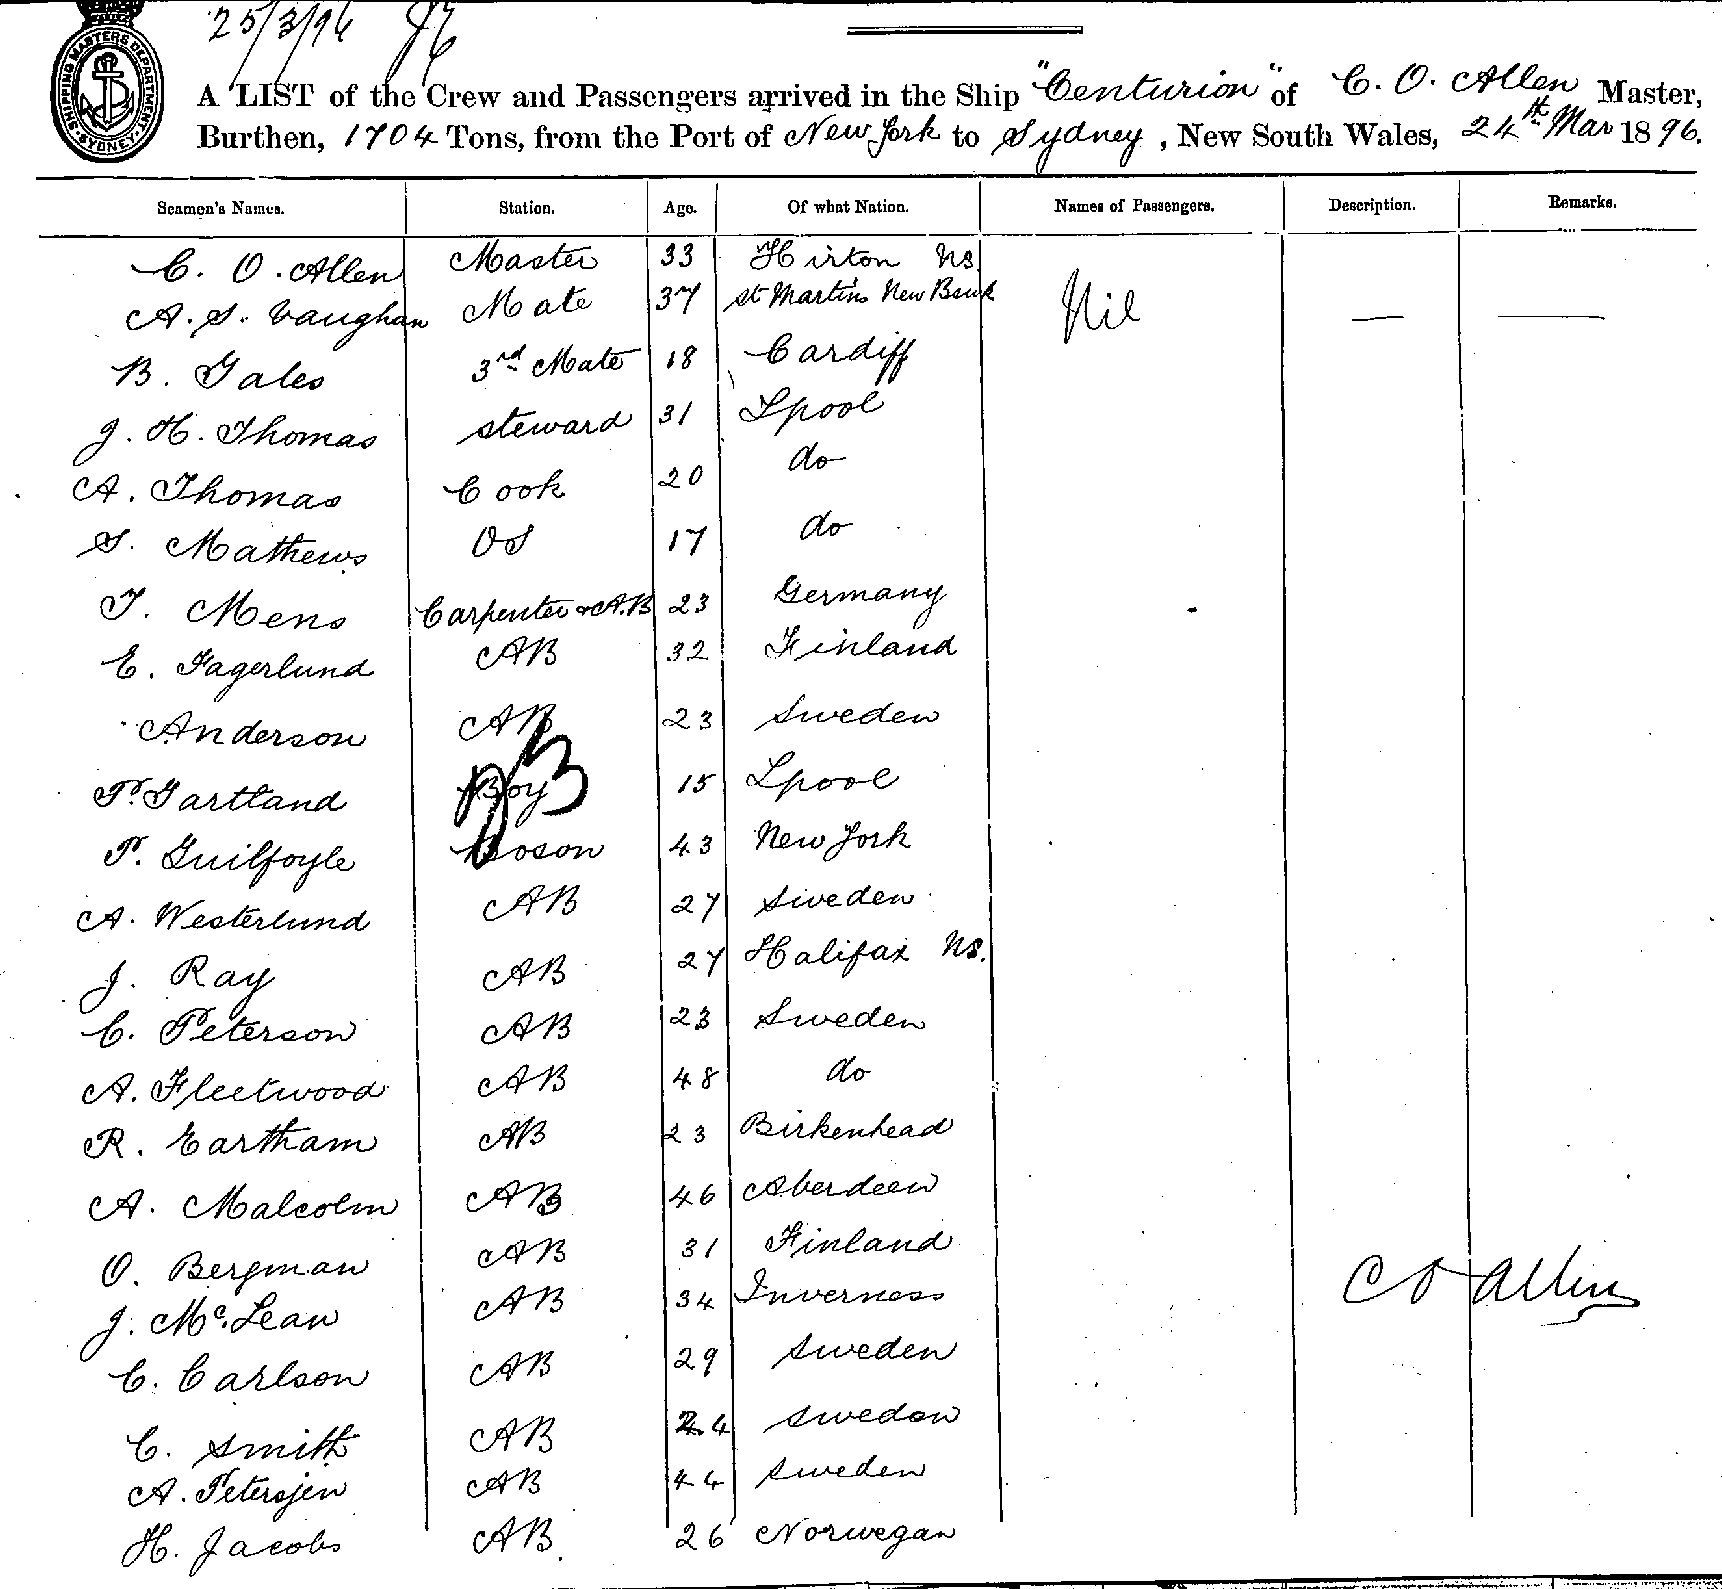 25/3/96
SHIPPING MASTERS DEPARTMENT SYDNEY
A LIST of the Crew and Passengers arrived in the Ship "Centurion" of C. O. Allen Master,
Burthen, 1704 Tons, from the Port of New York to Sydney, New South Wales, 24th Mar 1896.
Seamen's Names. Station. Age. Of what Nation. Names of Passengers. Description. Remarks.
C. O. Allen Master 33 Hirton NS. Nil — —
A. S. Vaughan Mate 37 St Martins New Bswk
B. Gales 3rd Mate 18 Cardiff
J. H. Thomas Steward 31 Lpool
A. Thomas Cook 20 do
S. Mathews OS 17 do
T. Mens Carpenter & A.B 23 Germany
E. Fagerlund AB 32 Finland
Anderson AB 23 Sweden
P. Gartland Boy 15 Lpool
P. Guilfoyle Boson 43 New York
A. Westerlund AB 27 Sweden
J. Ray AB 27 Halifax NS.
C. Peterson AB 23 Sweden
A. Fleetwood AB 48 do
R. Eartham AB 23 Birkenhead
A. Malcolm AB 46 Aberdeen
O. Bergman AB 31 Finland
J. McLean AB 34 Inverness
C O Allen
C. Carlson AB 29 Sweden
C. Smith AB 24 Sweden
A. Petersjen AB 44 Sweden
H. Jacobs AB 26 Norwegan